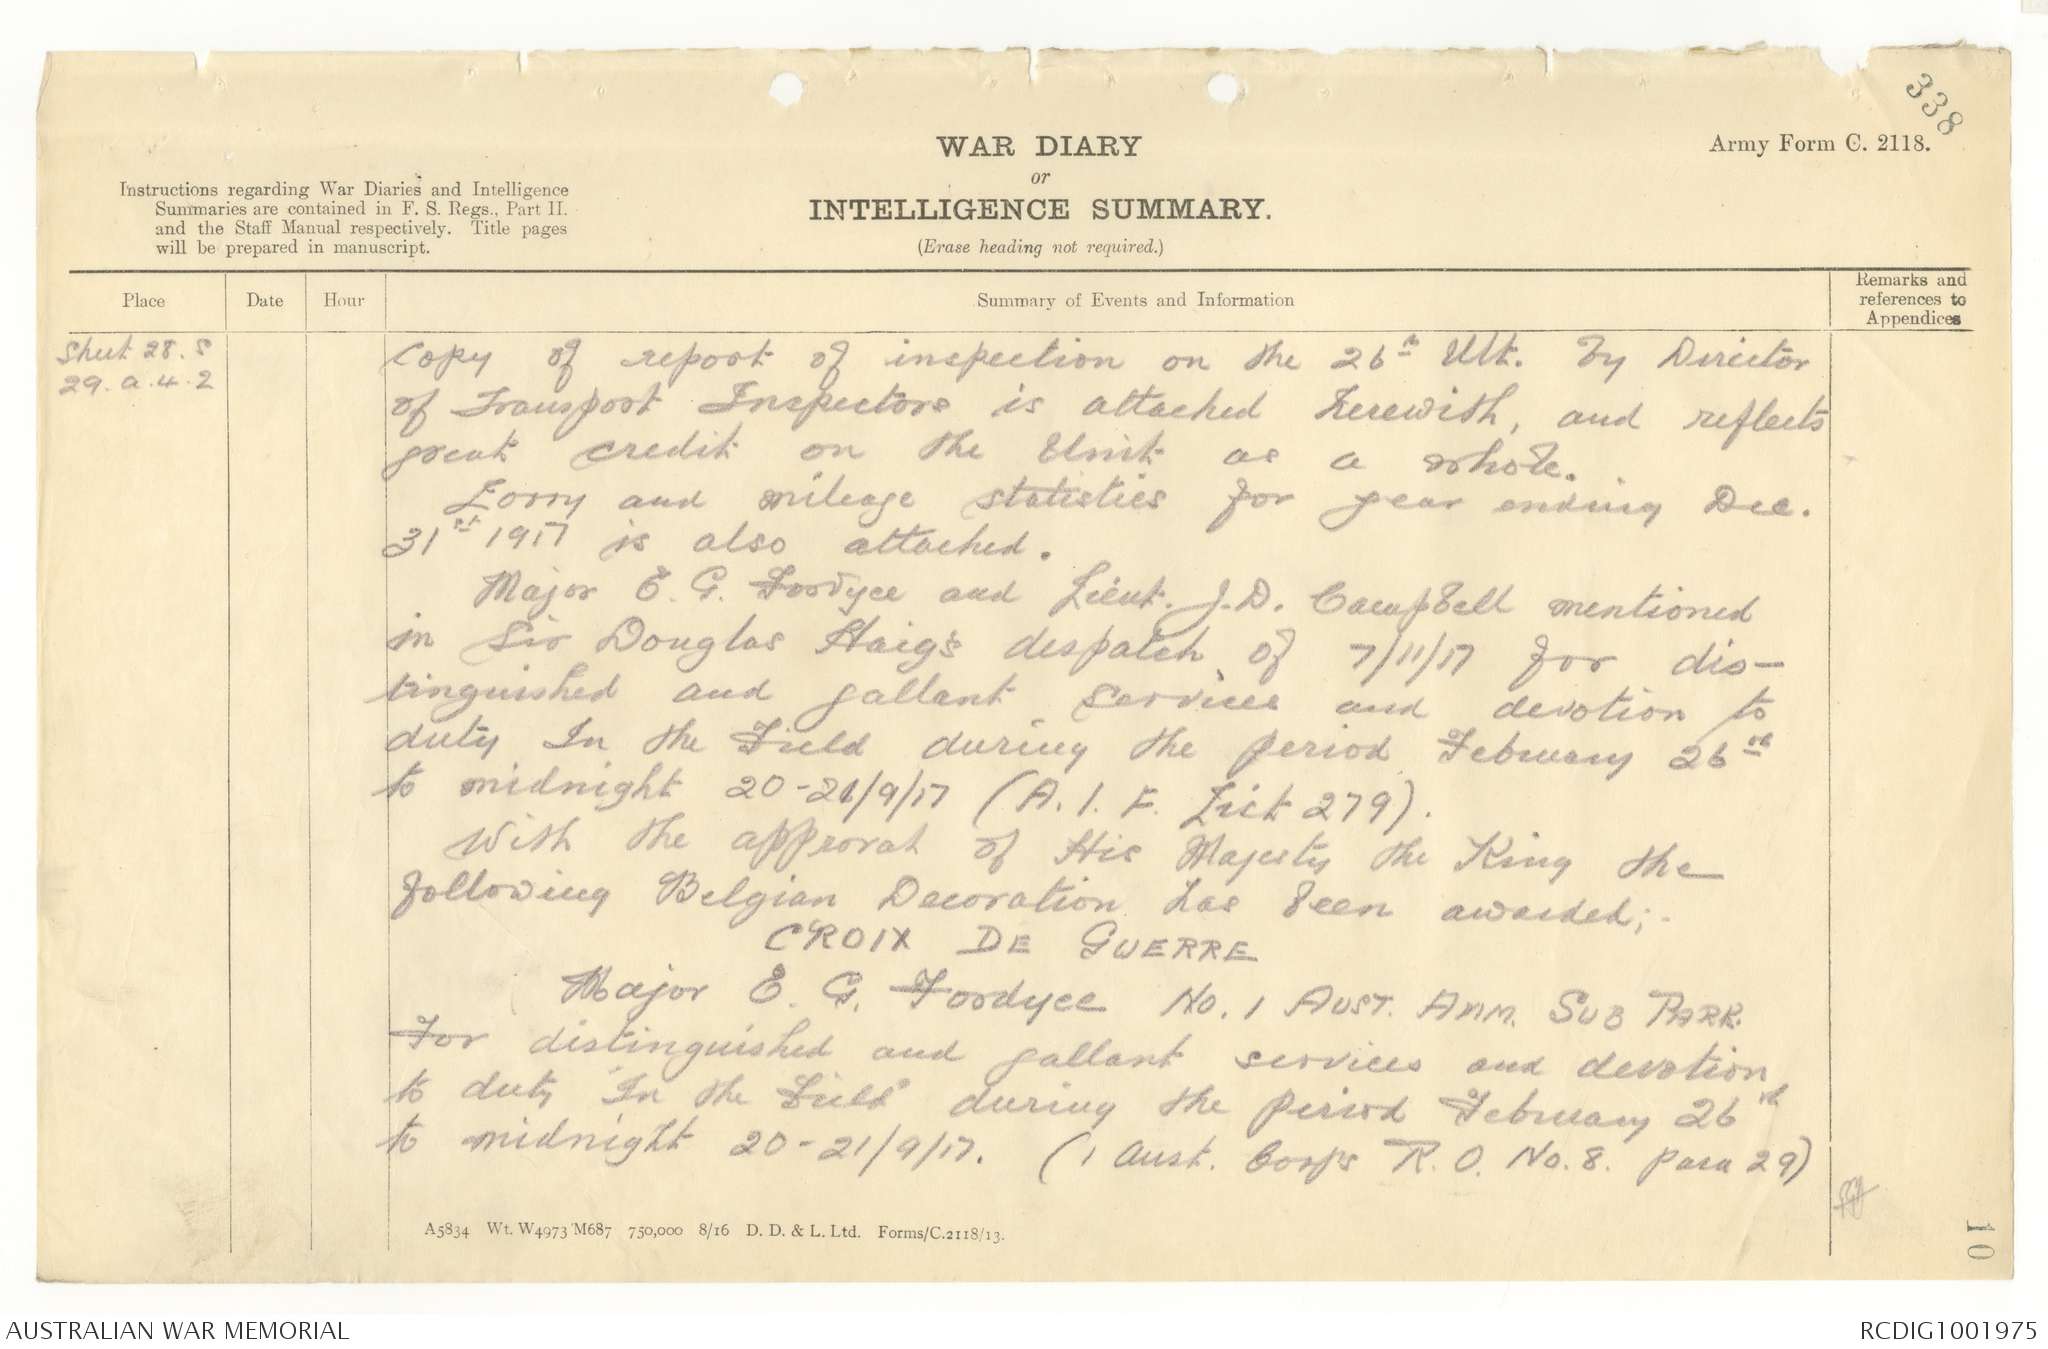 338
WAR DIARY
or
INTELLIGENCE SUMMARY.
(Erase heading not required.)
Army Form C. 2118.
Instructions regarding War Diaries and Intelligence
Summaries are contained in F. S. Regs., Part II.
and the Staff Manual respectively. Title pages
will be prepared in manuscript.
Place
Date
Hour
Summary of Events and Information
Remarks and
references to
Appendices
Sheet 28. S
29. a. 4. 2
Copy of report of inspection on the 26th Ult. by Director
of Transport Inspectors is attached herewith, and reflects
great credit on the Unit as a whole.
Lorry and mileage statistics for year ending Dec.
31st 1917 is also attached.
Major E. G. Fordyce and Lieut. J. D. Campbell mentioned
in Sir Douglas Haig's despatch of 7/11/17 for dis-
tinguished and gallant services and devotion to
duty In the Field during the period February 26th
to midnight 20-21/9/17 (A. I. F. List 279).
With the approval of His Majesty the King the
following Belgian Decoration has been awarded;-
CROIX DE GUERRE
Major E. G. Fordyce No. 1 AUST. AMM. SUB PARK.
For distinguished and gallant services and devotion
to duty "In the Field" during the period February 26th
to midnight 20-21/9/17. (1 Aust. Corps R. O. No. 8. para 29)
A5834 Wt. W4973 M687 750,000 8/16 D. D. & L. Ltd. Forms/C.2118/13.
10
AUSTRALIAN WAR MEMORIAL
RCDIG1001975